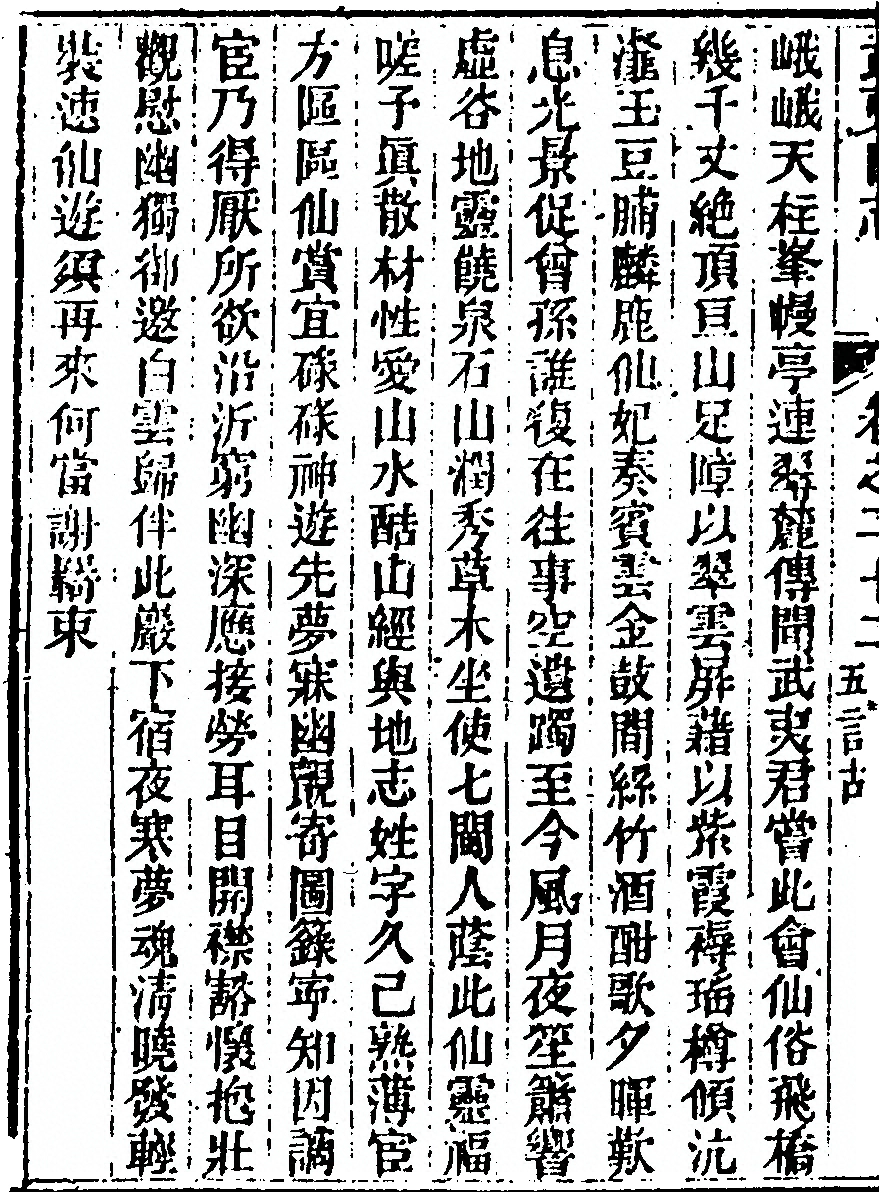 卷之二十二 五言古
峨峨天柱峯幔亭連翠麓傳聞武夷君嘗此會仙俗飛橋
幾千丈絶頂亘山足障以翠雲屏藉以紫霞褥瑤樽傾沆
瀣玉豆脯麟鹿仙妃奏賓雲金鼓間絲竹酒酣歌夕暉歎
息光景促曾孫誰復在往事空遺躅至今風月夜笙簫響
虛谷地靈饒泉石山潤秀草木坐使七閩人蔭此仙靈福
嗟予眞散材性愛山水酷山經與地志姓字久已熟薄宦
方區區仙賞宜碌碌神遊先夢寐幽覿寄圖籙寜知因謫
宦乃得厭所欲沿泝窮幽深應接勞耳目開襟豁懷抱壯
觀慰幽獨卻邀白雲歸伴此巖下宿夜寒夢魂清曉發輕
裝速仙遊須再來何當謝羈束